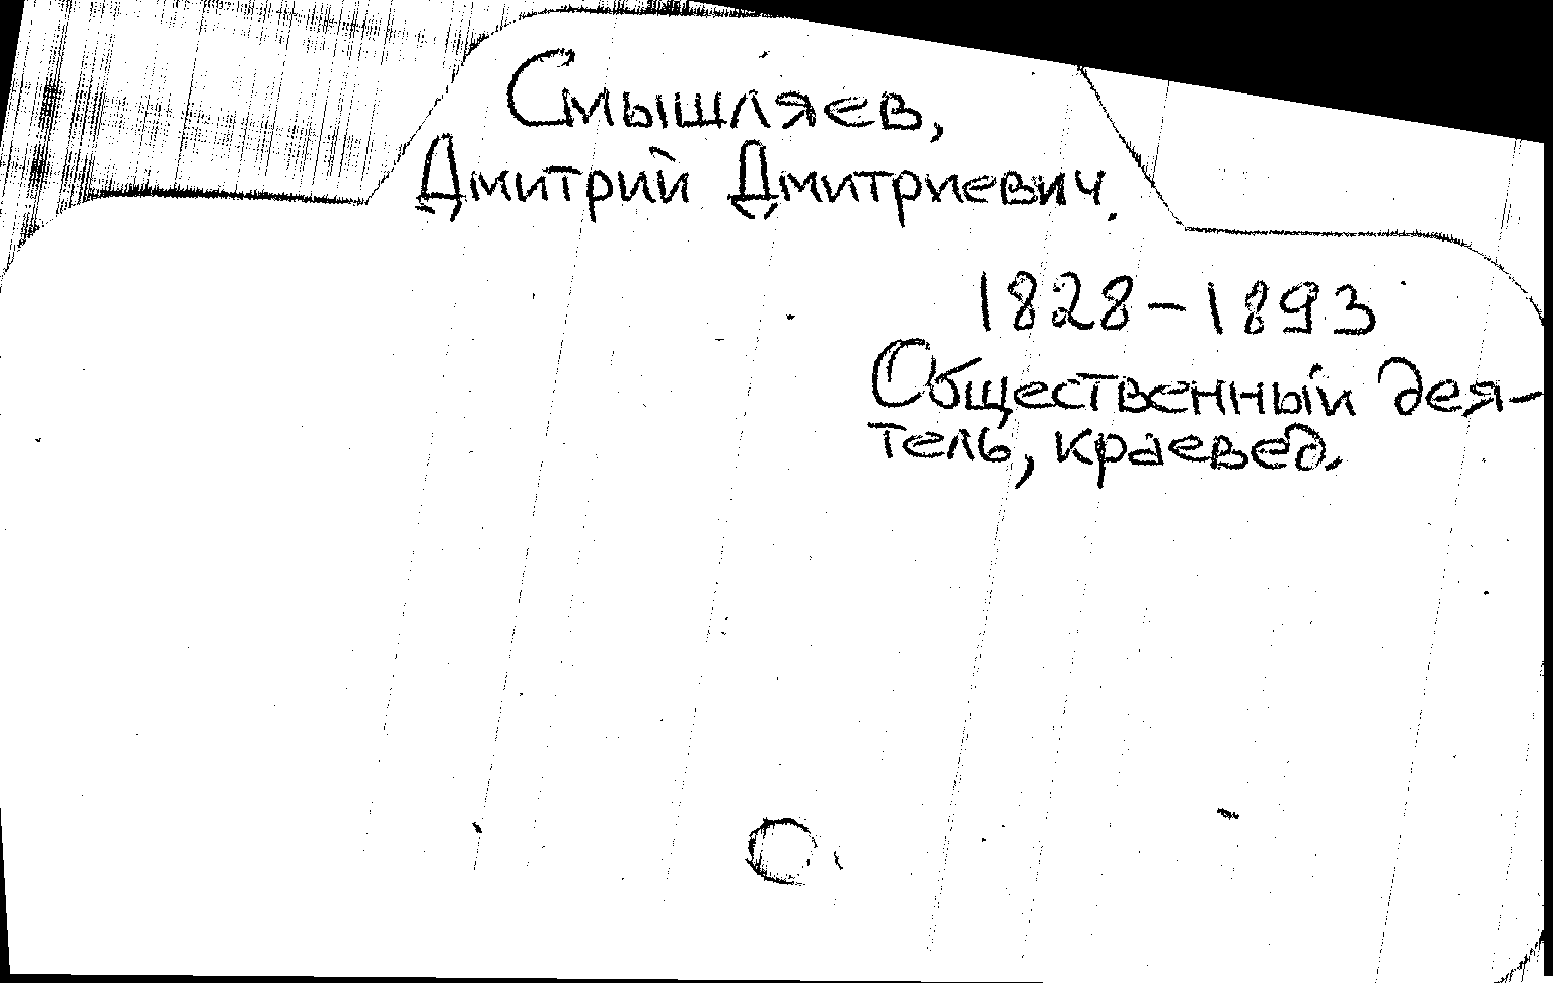 Смышляев,
Дмитрий Дмитриевич.
1828-1893
Общественный дея-
тель, краевед.